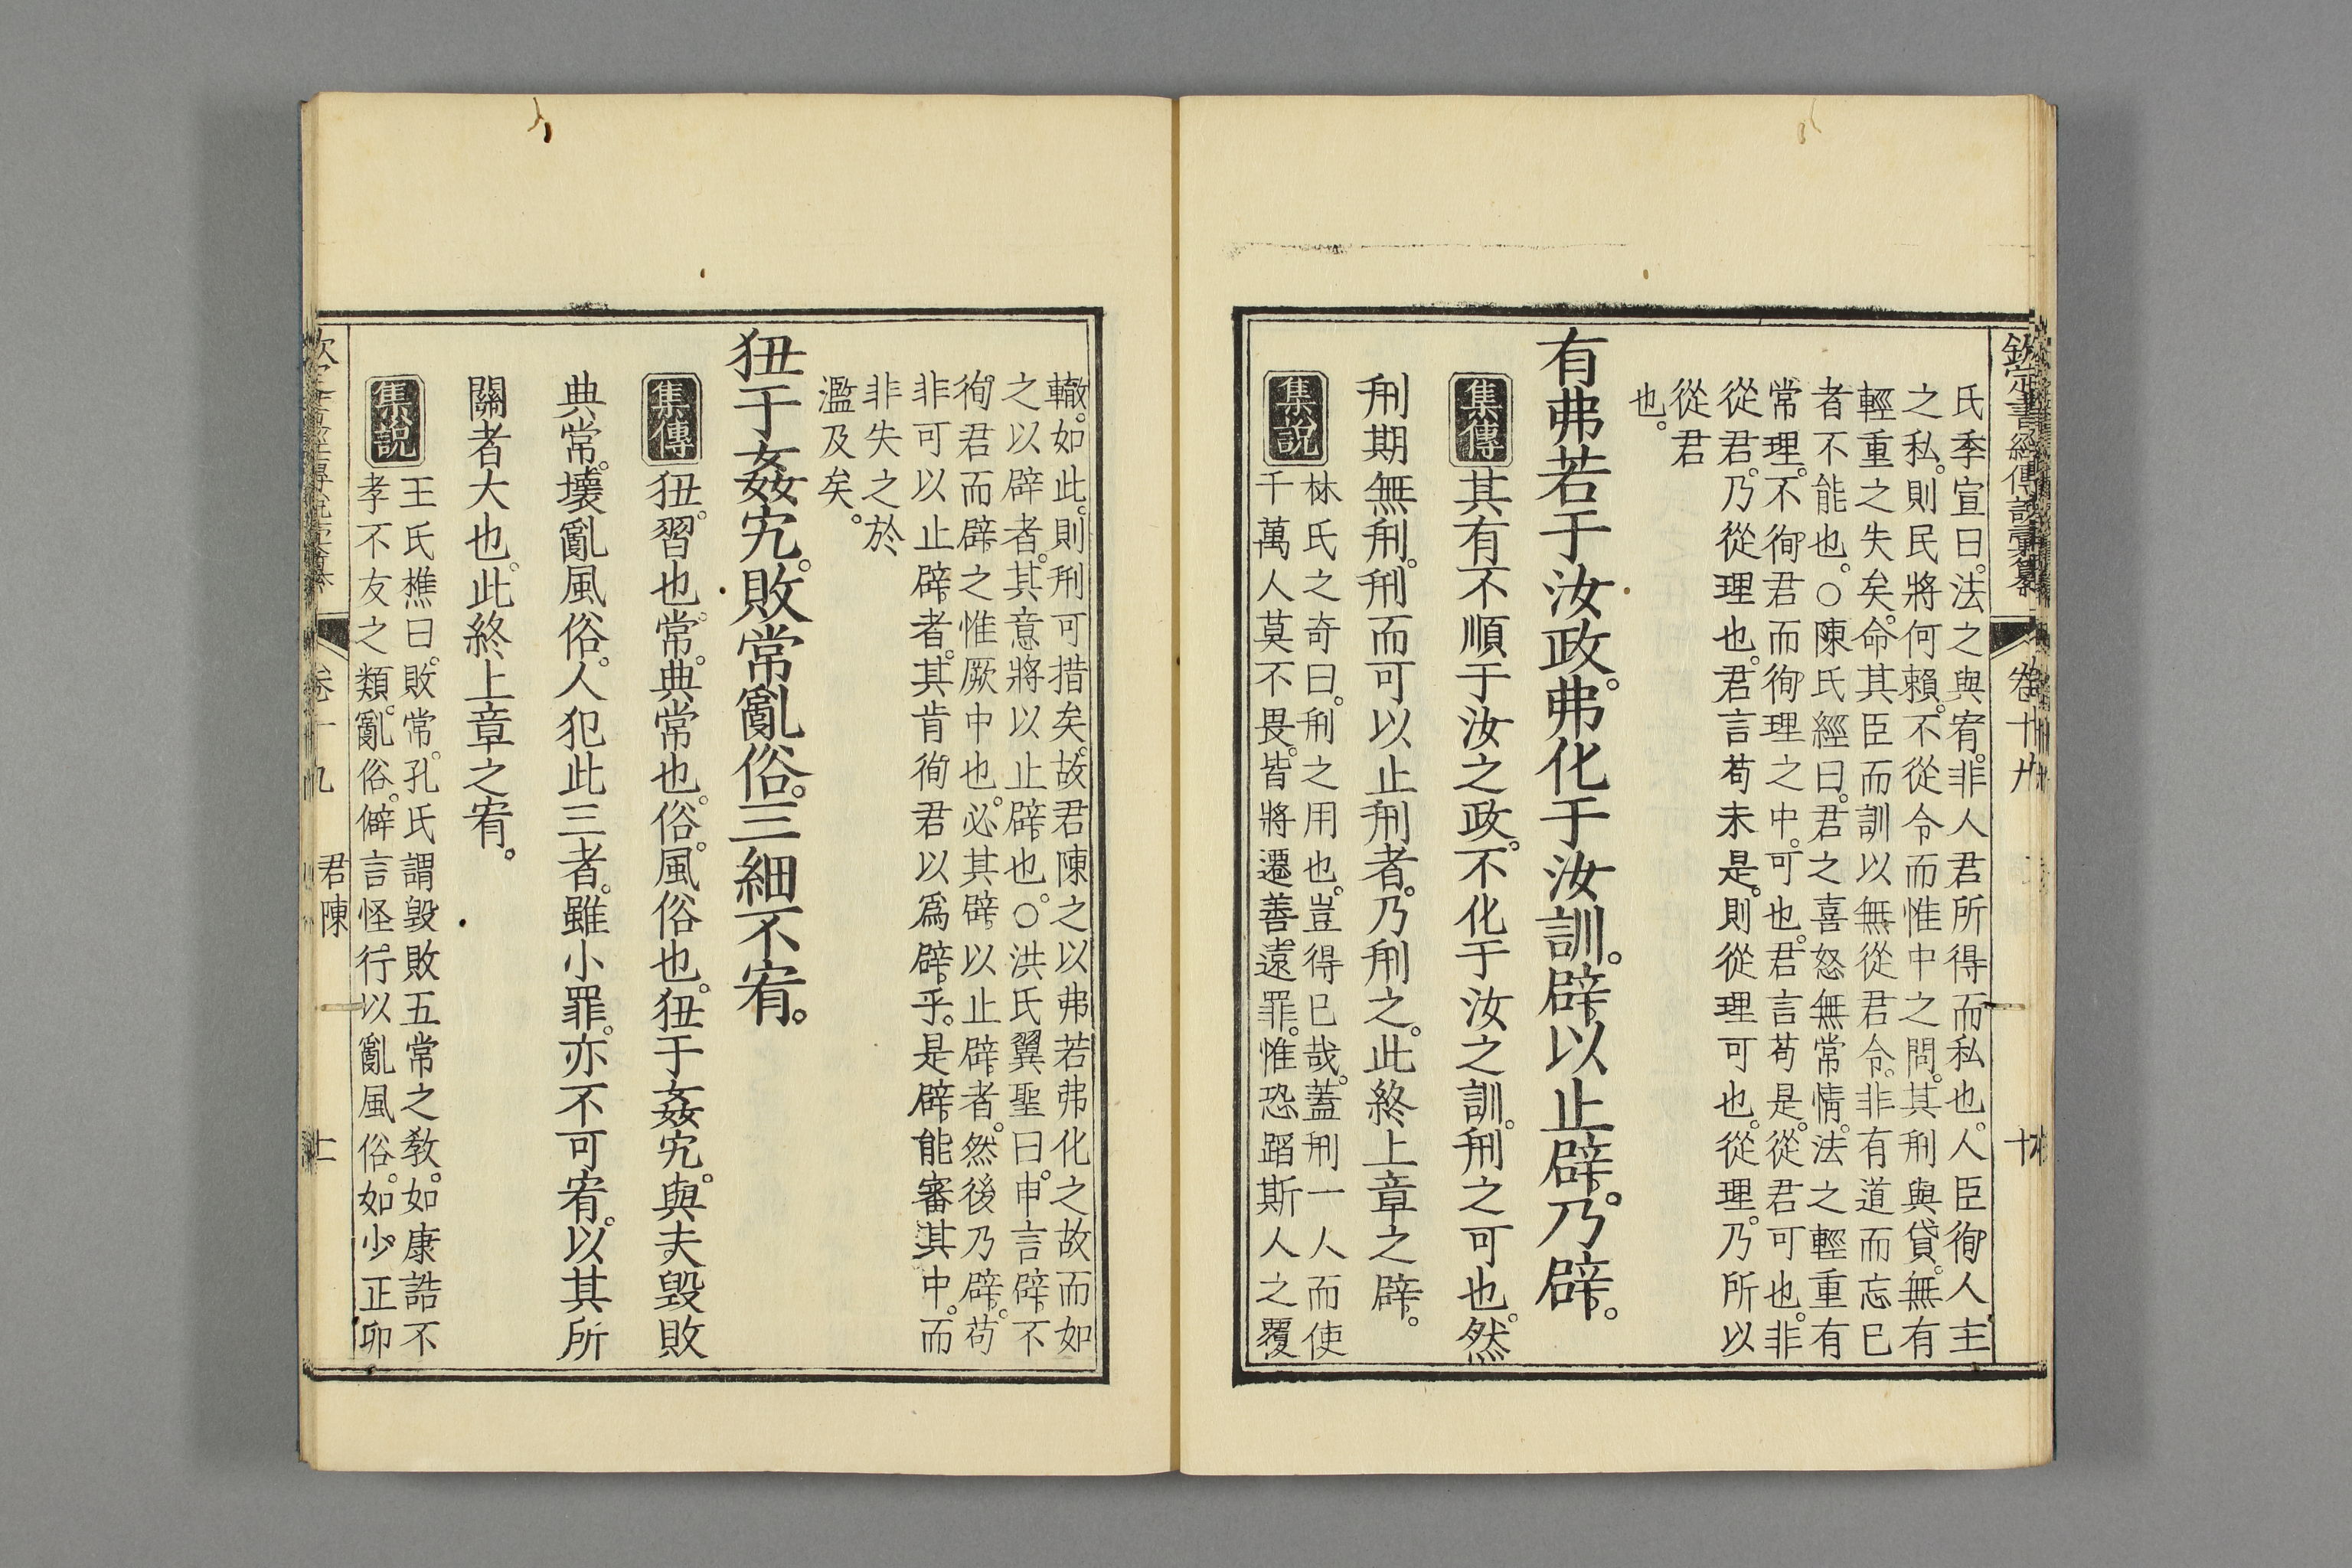 欽定書經傳說彙纂 卷十九 十
氏季宣曰。法之與宥。非人君所得而私也。人臣徇人主
之私。則民將何賴。不從令而惟中之問。其刑與貸。無有
輕重之失矣。命其臣而訓以無從君令。非有道而忘已
者不能也。○陳氏經曰。君之喜怒無常情。法之輕重有
常理。不徇君而徇理之中。可也。君言苟是。從君可也。非
從君。乃從理也。君言苟未是。則從理可也。從理。乃所以
從君
也。
有弗若于汝政。弗化于汝訓。辟以止辟。乃辟。
集傳 其有不順于汝之政。不化于汝之訓。刑之可也。然
刑期無刑。刑而可以止刑者。乃刑之。此終上章之辟。
集說 林氏之奇曰。刑之用也。豈得已哉。蓋刑一人而使
千萬人莫不畏。皆將遷善遠罪。惟恐蹈斯人之覆
轍。如此。則刑可措矣。故君陳之以弗若弗化之故而如
之以辟者。其意將以止辟也。○洪氏翼聖曰。申言辟。不
徇君而辟之惟厥中也。必其辟以止辟者。然後乃辟。苟
非可以止辟者。其肯徇君以爲辟乎。是辟能審其中。而
非失之於
濫及矣。
狃于姦宄。敗常亂俗。三細不宥。
集傳 狃。習也。常。典常也。俗。風俗也。狃于姦宄。與夫毀敗
典常。壞亂風俗。人犯此三者。雖小罪。亦不可宥。以其所
關者大也。此終上章之宥。
集說 王氏樵曰。敗常。孔氏謂毀敗五常之教。如康誥不
孝不友之類。亂俗。僻言怪行以亂風俗。如少正卯
卷十九 君陳